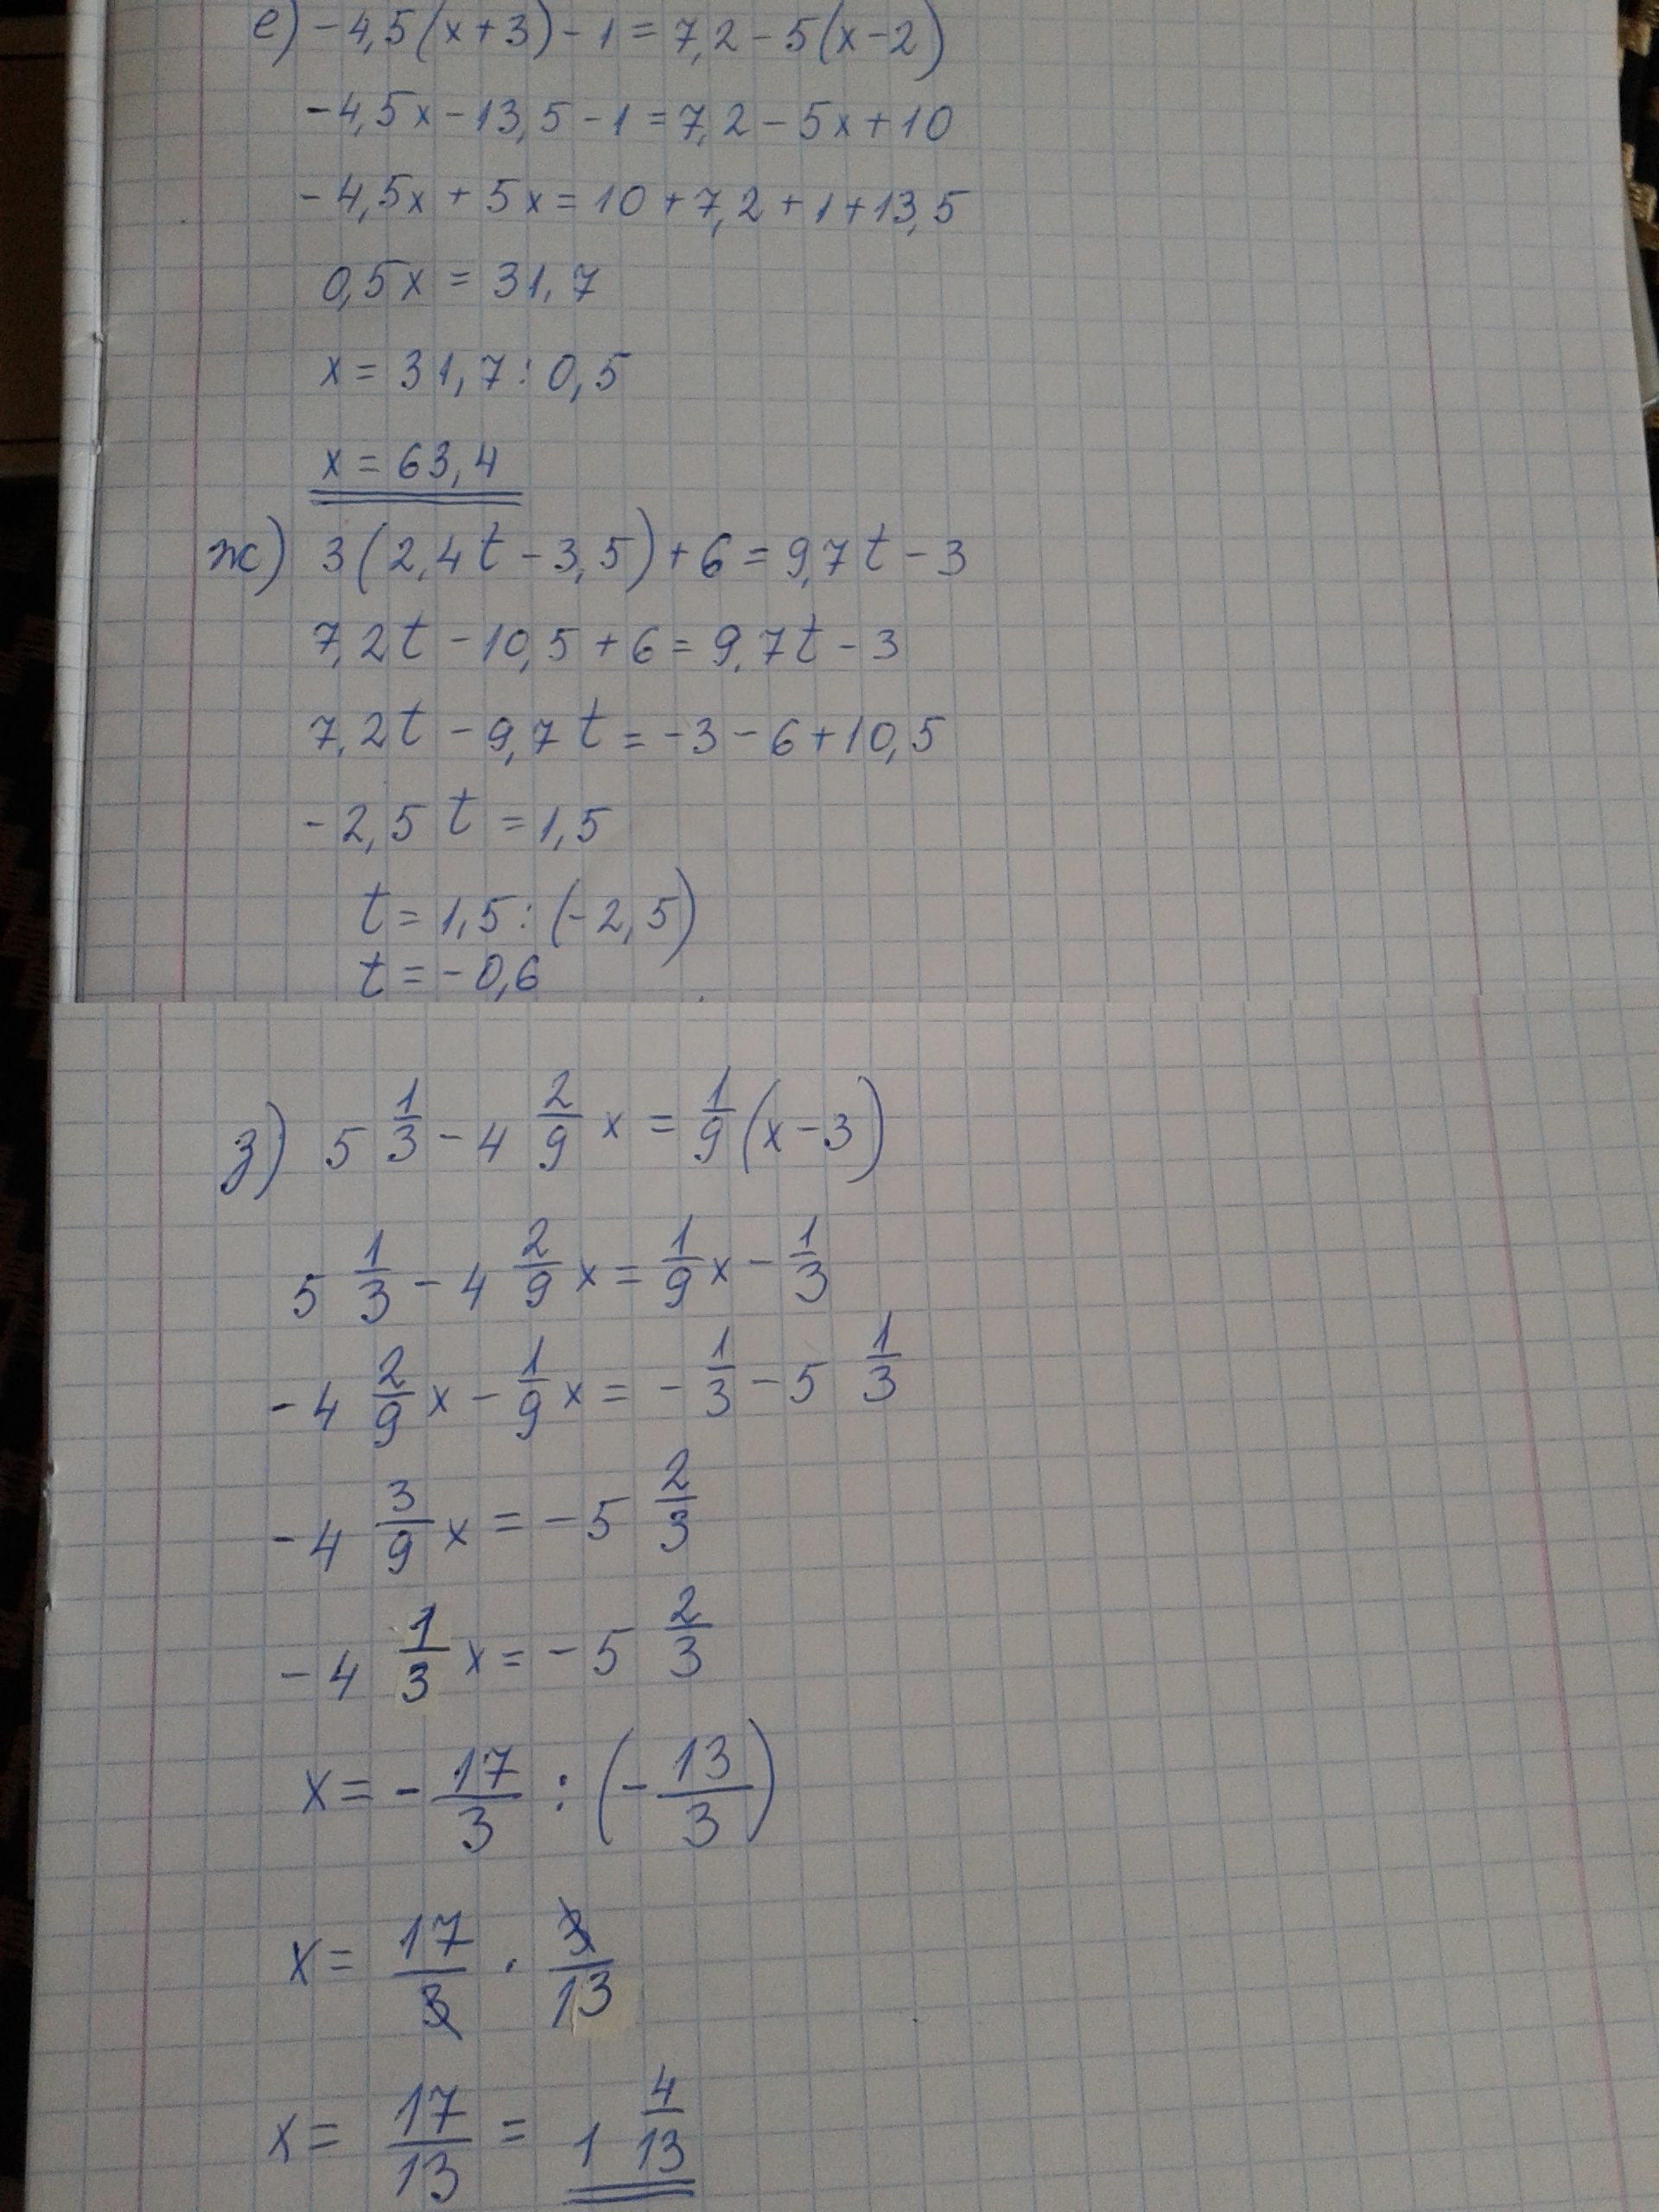 е) -4,5(x+3)-1=7,2-5(x-2)
-4,5x-13,5-1=7,2-5x+10
-4,5x+5x=10+7,2+1+13,5
0,5x=31,7
x=31,7:0,5
x=63,4
ж) 3(2,4t-3,5)+6=9,7t-3
7,2t-10,5+6=9,7t-3
7,2t-9,7t=-3-6+10,5
-2,5t=1,5
t=1,5:(-2,5)
t=-0,6
з) 5 1/3 - 4 2/9 x = 1/9 (x-3)
5 1/3 - 4 2/9 x = 1/9 x - 1/3
-4 2/9 x - 1/9 x = -1/3 - 5 1/3
-4 3/9 x = -5 2/3
-4 1/3 x = -5 2/3
x = -17/3 : (-13/3)
x = 17/3 · 3/13
x = 17/13 = 1 4/13